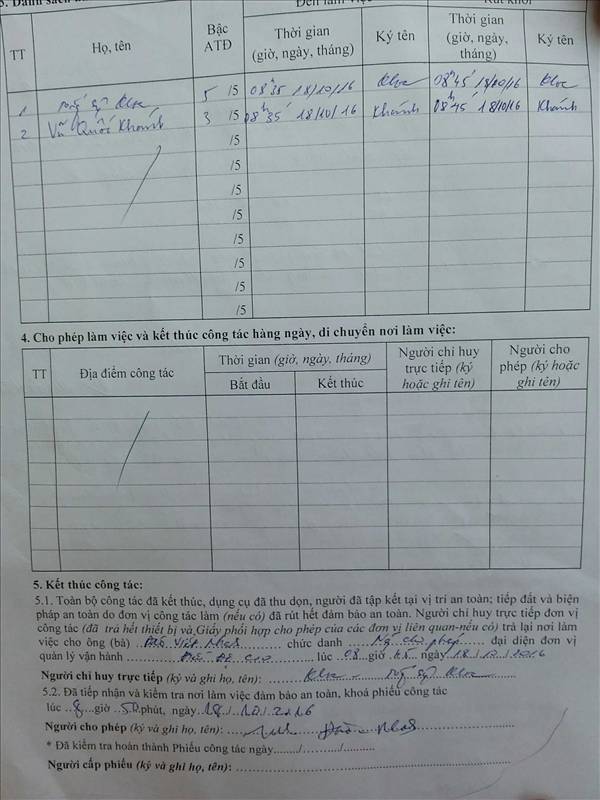 TT Họ, tên Bậc ATĐ Thời gian (giờ, ngày, tháng) Ký tên Thời gian (giờ, ngày, tháng) Ký tên
1 5 /5 08h35' 18/10/16 08h45' 16
2 Vũ Quốc Khánh 3 /5 08h35' 18/10/16 Khánh 08h45' 18/10/16 Khánh
/5
/5
/5
/5
/5
/5
/5
/5
4. Cho phép làm việc và kết thúc công tác hàng ngày, di chuyển nơi làm việc:
TT Địa điểm công tác Thời gian (giờ, ngày, tháng) Người chỉ huy trực tiếp (ký hoặc ghi tên) Người cho phép (ký hoặc ghi tên)
Bắt đầu Kết thúc
5. Kết thúc công tác:
5.1. Toàn bộ công tác đã kết thúc, dụng cụ đã thu dọn, người đã tập kết tại vị trí an toàn; tiếp đất và biện
pháp an toàn do đơn vị công tác làm (nếu có) đã rút hết đảm bảo an toàn. Người chỉ huy trực tiếp đơn vị
công tác (đã trả hết thiết bị và Giấy phối hợp cho phép của các đơn vị liên quan-nếu có) trả lại nơi làm
việc cho ông (bà) chức danh Ng cho phép đại diện đơn vị
quản lý vận hành lúc 08 giờ 45 ngày 18/10/2016
Người chỉ huy trực tiếp (ký và ghi họ, tên):
5.2. Đã tiếp nhận và kiểm tra nơi làm việc đảm bảo an toàn, khoá phiếu công tác
lúc 8 giờ 50 phút, ngày 18/10/2016
Người cho phép (ký và ghi họ, tên):
* Đã kiểm tra hoàn thành Phiếu công tác ngày......./........../..........
Người cấp phiếu (ký và ghi họ, tên):